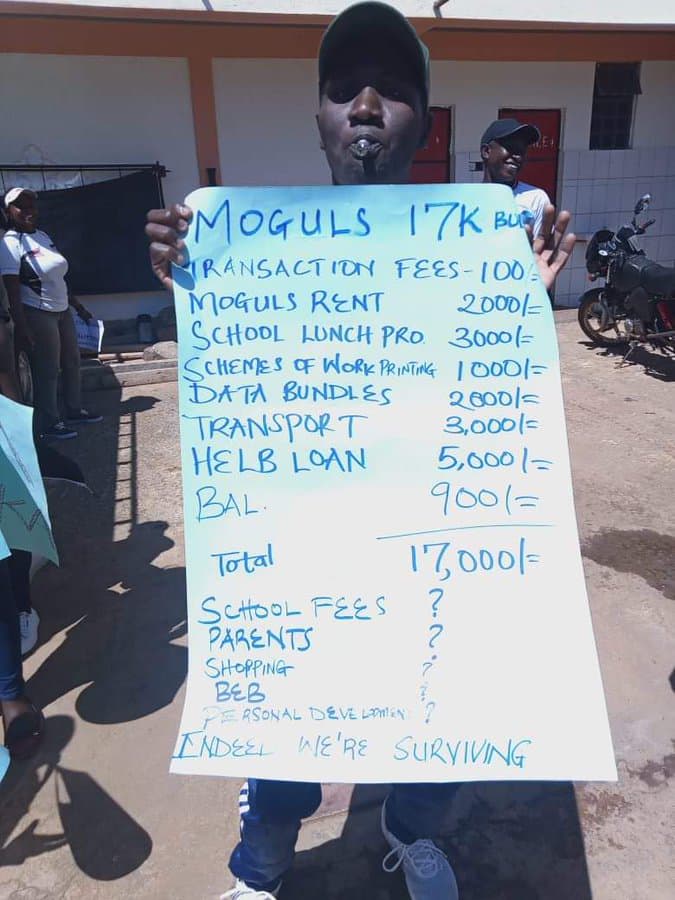 MOGULS 17K
TRANSACTION FEES - 100/=
MOGULS RENT 2000/=
SCHOOL LUNCH PRO. 3000/=
SCHEMES OF WORK PRINTING 1000/=
DATA BUNDLES 2000/=
TRANSPORT 3,000/=
HELB LOAN 5,000/=
BAL. 900/=
Total 17,000/=
SCHOOL FEES ?
PARENTS ?
SHOPPING ?
BEB ?
PERSONAL DEVELOPMENT ?
INDEEL WE'RE SURVIVING